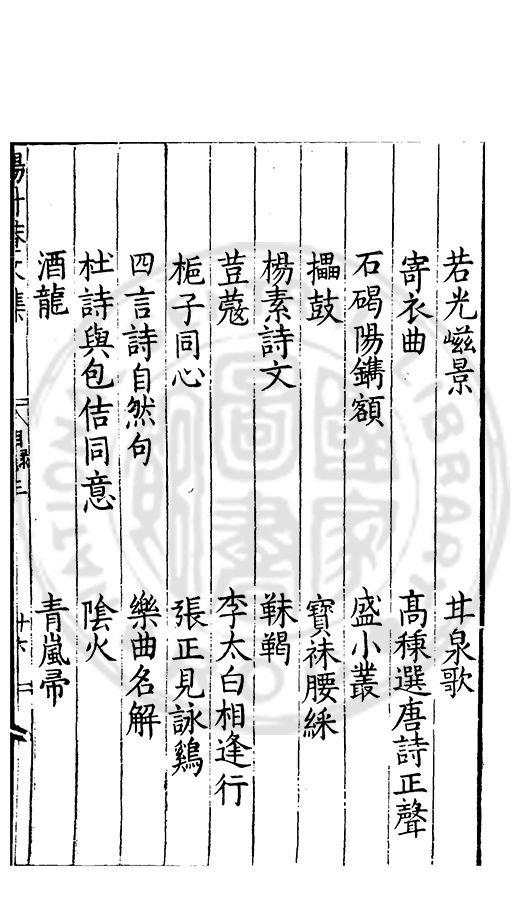 若光巀景　井泉歌
寄衣曲　高棅選唐詩正聲
石碣陽鐫額　盛小叢
攂鼓　寶袜腰綵
楊素詩文　靺鞨
荳蔻　李太白相逢行
梔子同心　張正見詠鷄
四言詩自然句　樂曲名解
杜詩與包佶同意　陰火
酒龍　青嵐帚